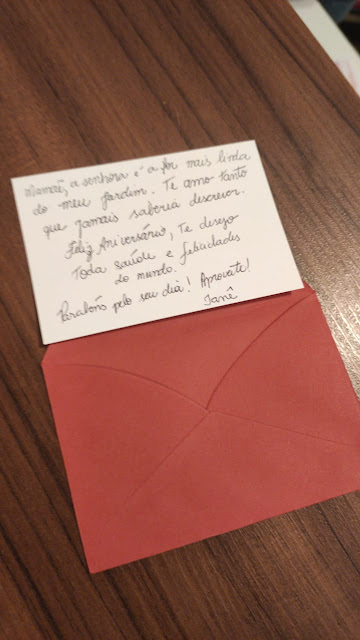 Mamãe, a senhora é a flor mais linda
do meu jardim. Te amo tanto
que jamais saberia descrever.
Feliz Aniversário, Te desejo
Toda saúde e felicidades
do mundo.
Parabéns pelo seu dia! Aproveite!
Ianê